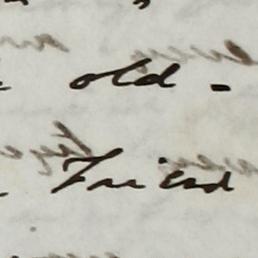 old -
Friend